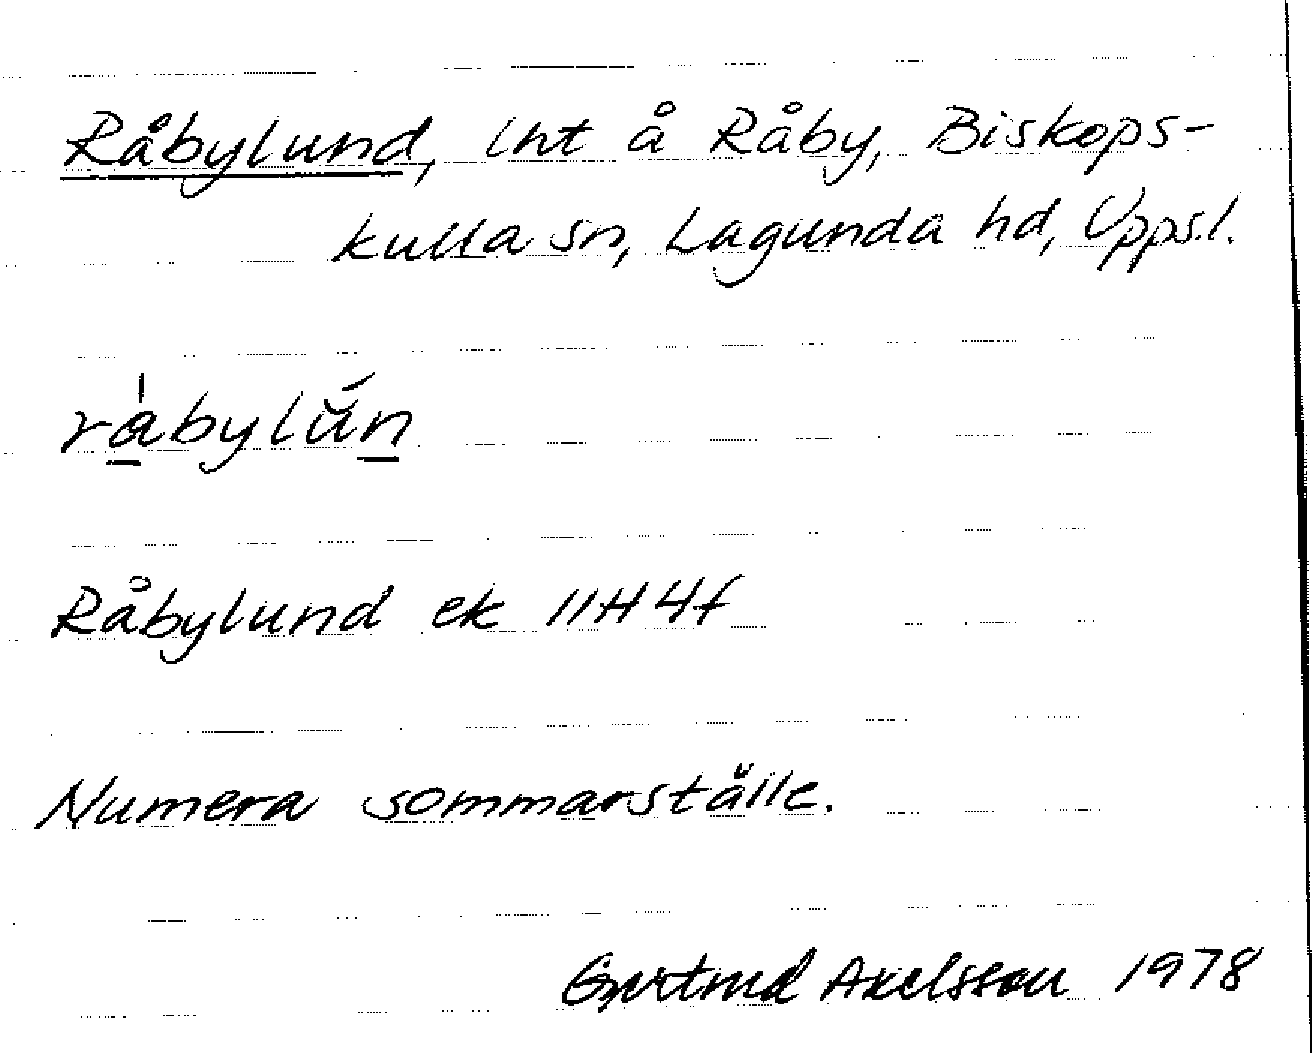 Råbylund, lht å Råby, Biskops-
kulla sn, Lagunda hd, Uppsl.
rå̀bylǔ́n
Råbylund ek 11H4f
Numera sommarställe.
Gertrud Axelsson 1978